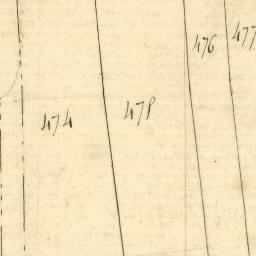 477
476
478
474